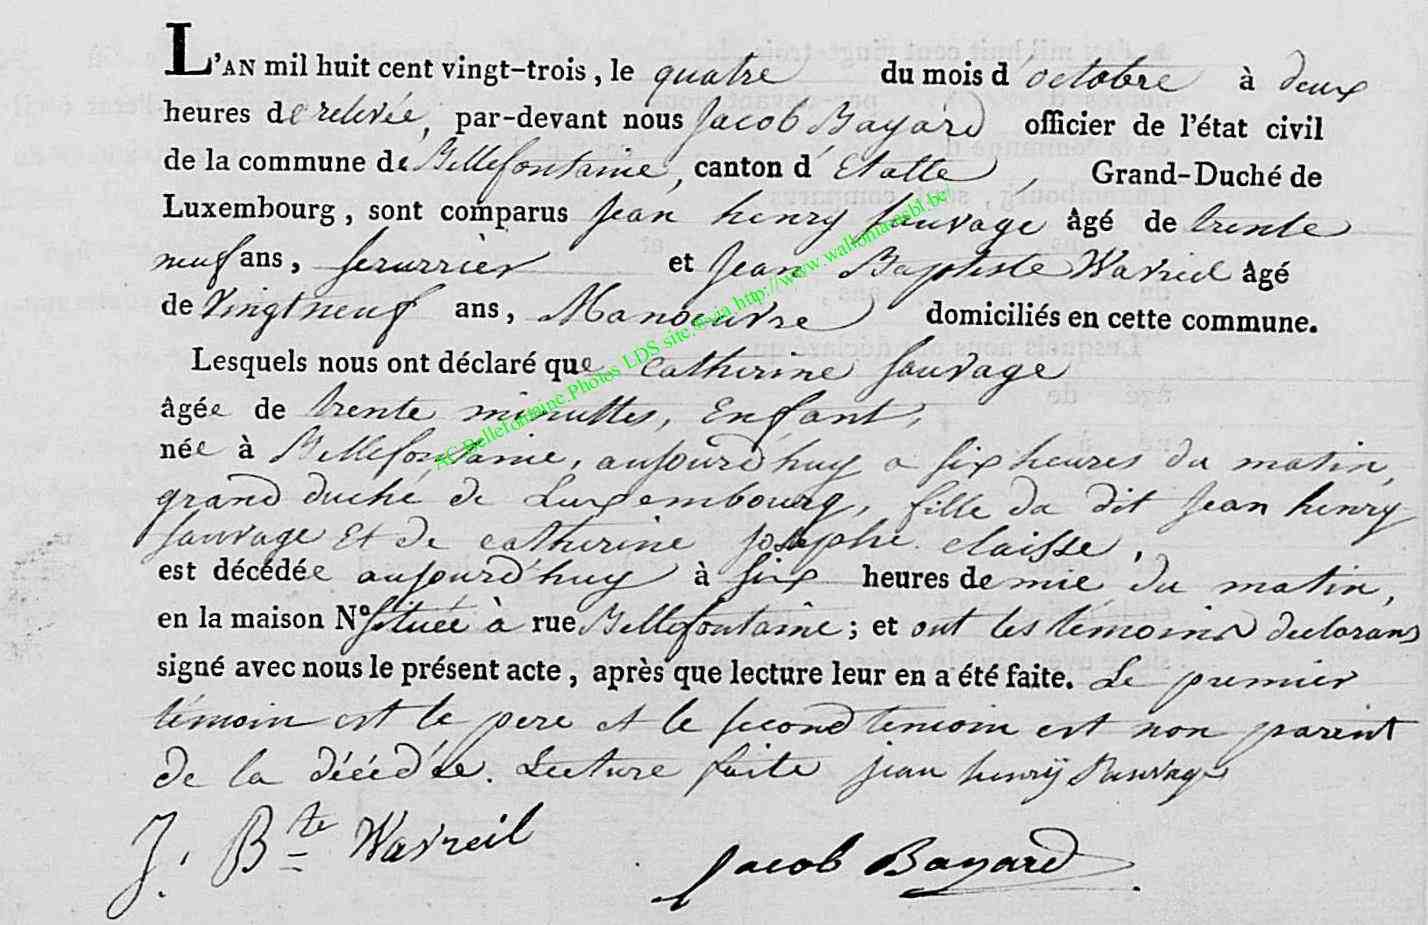 L'AN mil huit cent vingt-trois, le quatre du mois d'octobre à deux
heures de relevée, par-devant nous Jacob Bayard officier de l'état civil
de la commune de Bellefontaine, canton d'Etalle, Grand-Duché de
Luxembourg, sont comparus Jean henry Sauvage âgé de trente
neuf ans, serurrier et Jean Baptiste Wavreil âgé
de Vingt neuf ans, Manoeuvre domiciliés en cette commune.
Lesquels nous ont déclaré que catherine Sauvage
âgée de trente minuttes, Enfant,
née à Bellefontaine, aujourd'huy a six heures du matin,
grand duché de Luxembourg, fille du dit Jean henry
Sauvage Et de catherine josephe claisse,
est décédée aujourd'huy à six heures de mie du matin,
en la maison N° située à rue Bellefontaine; et ont les témoins declarans
signé avec nous le présent acte, après que lecture leur en a été faite. Le premier
témoin est le pere et le second temoin est non parent
de la décédée. Lecture faite jean henrÿ Sauvage
J. B^te Wavreil Jacob Bayard
AC Bellefontaine.Photos LDS site.©via http://www.walloniasbl.be/